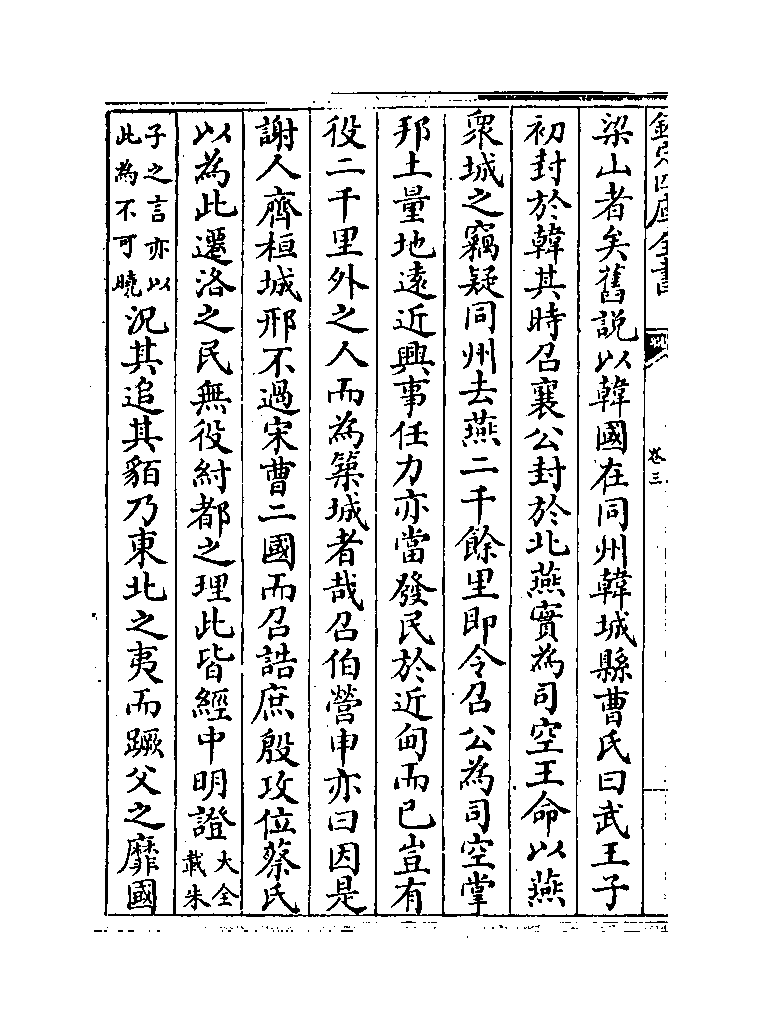 欽定四庫全書
卷三
梁山者矣舊說以韓國在同州韓城縣曹氏曰武王子
初封於韓其時召襄公封於北燕實為司空王命以燕
衆城之竊疑同州去燕二千餘里即令召公為司空掌
邦土量地遠近興事任力亦當發民於近甸而已豈有
役二千里外之人而為築城者哉召伯營申亦曰因是
謝人齊桓城邢不過宋曹二國而召誥庶殷攻位蔡氏
以為此遷洛之民無役紂都之理此皆經中明證大全載朱
子之言亦以此為不可曉況其追其貊乃東北之夷而蹶父之靡國